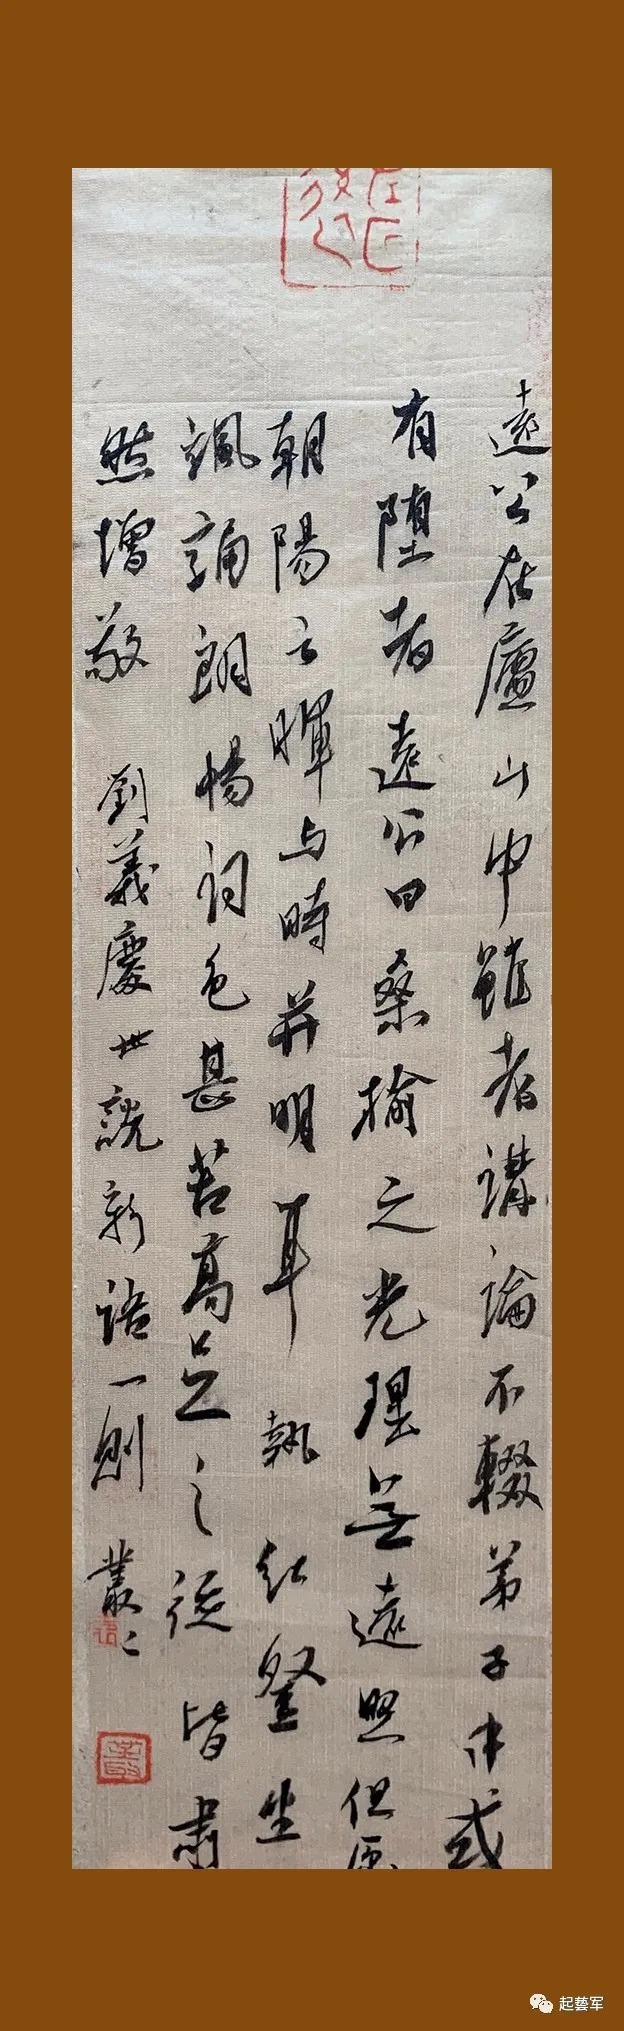 遠公在廬山中雖老講論不輟弟子中或
有墮者遠公曰桑榆之光理無遠照但愿
朝陽之暉与時并明耳執經登坐
諷誦朗暢詞色甚苦高足之徒皆肅
然增敬 劉義慶世說新語一則 叢
起藝军